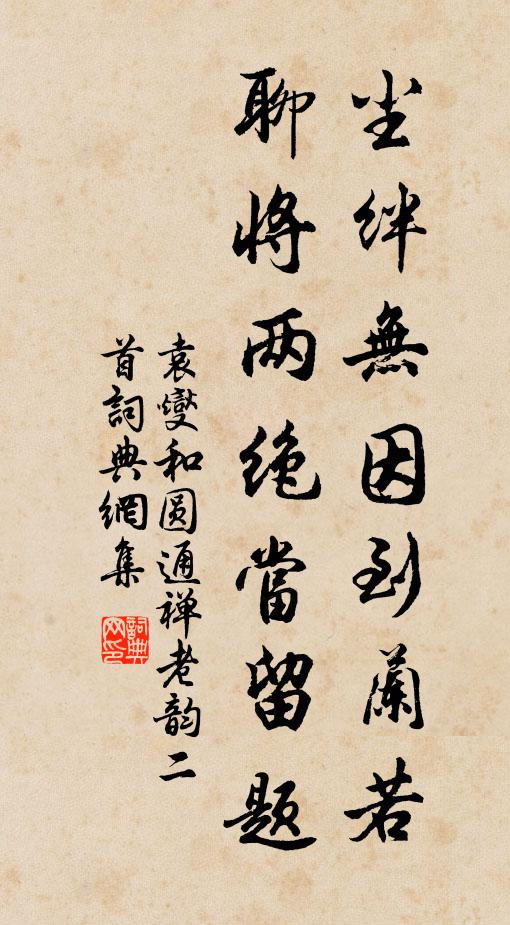 尘绊無因到蘭若
聊將两绝當留题
袁燮和圆通禅老韵二
首詞典網集
詞典网印